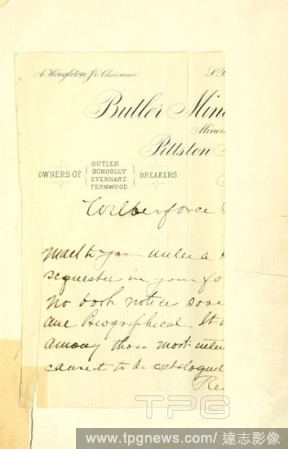 A Houghton Jr. Chairman
Butler Mine
Mine
Pittston
OWNERS OF
BUTLER
SCHOOLLY
EVERHART
FERNWOOD
BREAKERS
Wilberforce
mail to you under a
sequester in your fo
No book notice save
are Biographical. It
among those most inte
caused to be catalogued
Re
TPG
www.tpgnews.com / 達志影像